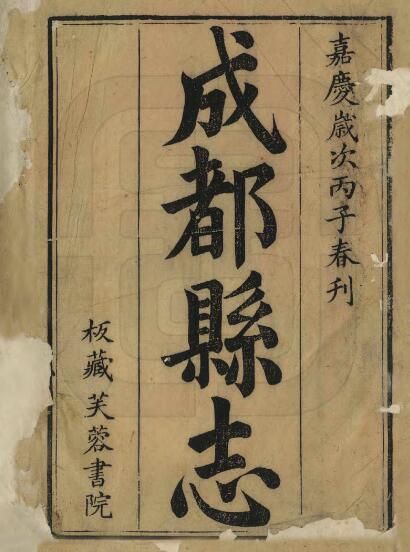 嘉慶歲次丙子春刊
成都縣志
板藏芙蓉書院